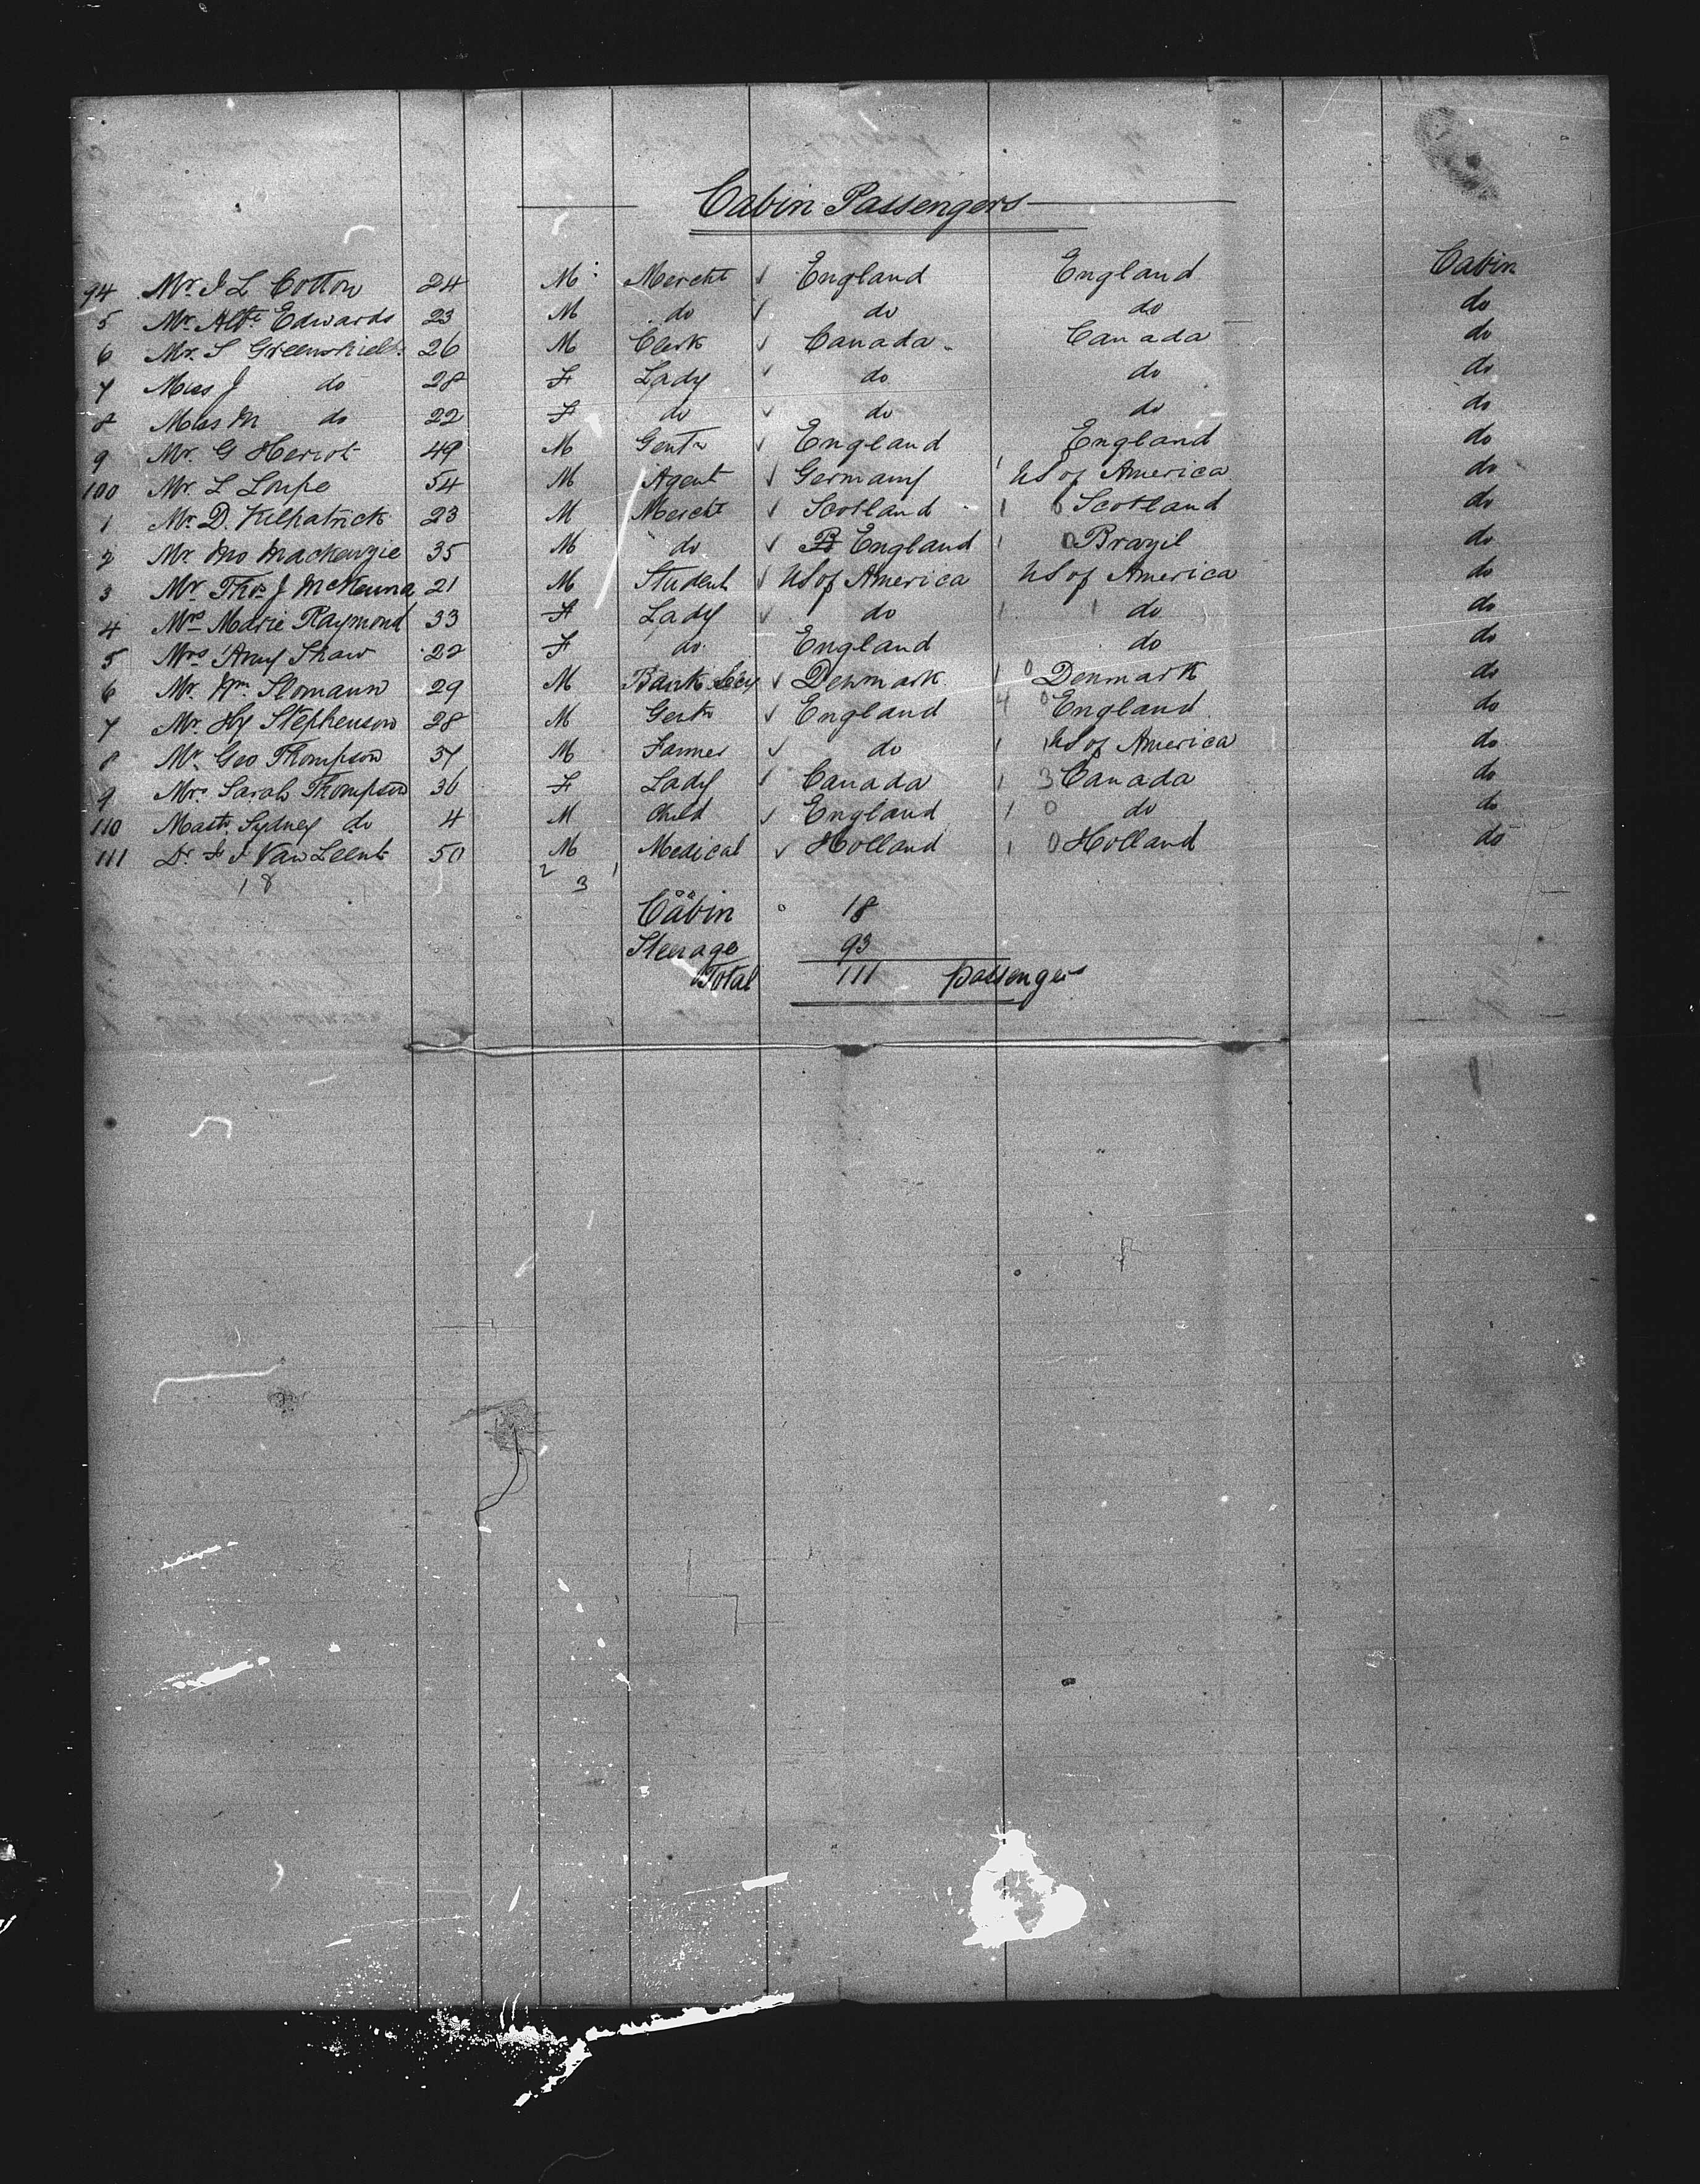 Cabin Passengers
94 Mr. J L Cotton 24 M Mercht ✓ England England Cabin
5 Mr. Albt. Edwards 23 M do ✓ do do do
6 Mr. S Greenshields 26 M Clerk ✓ Canada Canada do
7 Miss J do 28 F Lady ✓ do do do
8 Miss M do 22 F do ✓ do do do
9 Mr. G Heriot 49 M Gentn ✓ England England do
100 Mr. L Loupe 54 M Agent ✓ Germany 1 US of America do
1 Mr. D. Kilpatrick 23 M Mercht ✓ Scotland 1 0 Scotland do
2 Mr. Jno Mackenzie 35 M do ✓ England 1 0 Brazil do
3 Mr. Thos J McKenna 21 M Student ✓ US of America US of America do
4 Mrs Marie Raymond 33 F Lady ✓ do 1 1 do do
5 Mrs Amy Shaw 22 F do England do do
6 Mr. Wm. Slomann 29 M Bank Secy ✓ Denmark 1 0 Denmark do
7 Mr. Hy Stephenson 28 M Gentn ✓ England 4 0 England do
8 Mr. Geo Thompson 37 M Farmer ✓ do 1 1 US of America do
9 Mrs Sarah Thompson 36 F Lady Canada 1 3 Canada do
110 Mastr. Sydney do 4 M Child ✓ England 1 0 do do
111 Dr. Van Leent 50 M Medical ✓ Holland 1 0 Holland do
18 2 3 1
Cabin 18
Steerage 93
Total 111 passengers